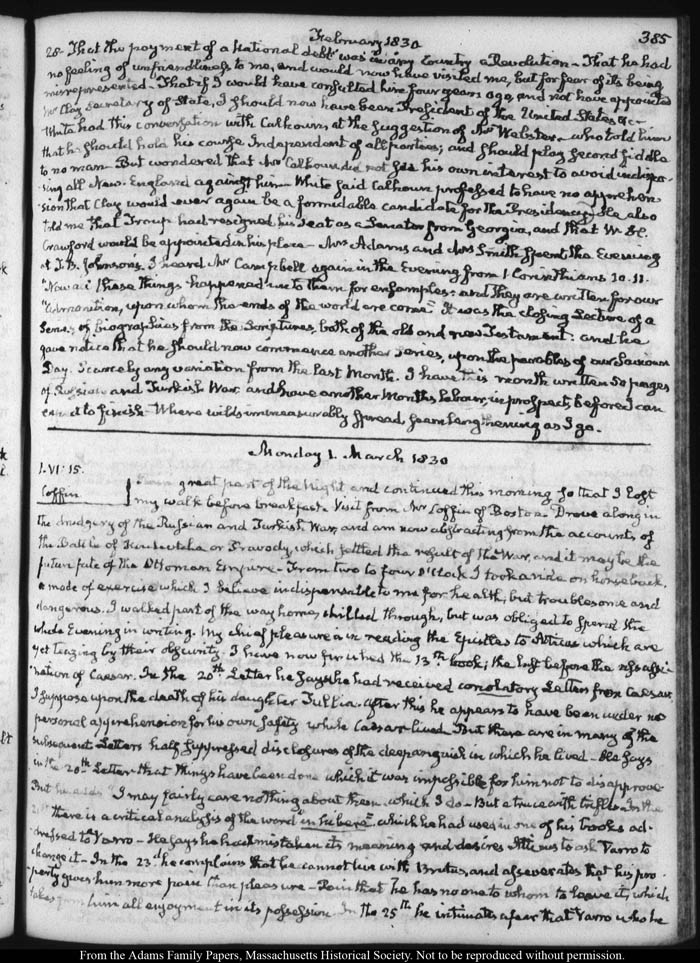 February 1830
385
28. That the payment of a National debt was in any Country a Revolution – That he had
no feeling of unfriendliness to me, and would now have visited me, but for fear of its being
misrepresented – That if I would have consulted him four years ago, and not have appointed
Mr Clay Secretary of State, I should now have been President of the United States &c –
White had this conversation with Calhoun at the suggestion of Mr Webster – who told him
that he should hold his course Independent of all parties; and should play second fiddle
to no man – But wondered that Mr Calhoun did not see his own interest to avoid indispo-
sing all New-England against him – White said Calhoun professed to have no apprehen-
sion that Clay would ever again be a formidable candidate for the Presidency; He also
told me that Troup had resigned his Seat as a Senator from Georgia, and that W. H.
Crawford would be appointed in his place – Mrs Adams and Mrs Smith spent the Evening
at T. B. Johnson's. I heard Mr Campbell again in the Evening from 1 Corinthians 10. 11.
"Now all these things happened unto them for ensamples: and they are written for our
"admonition, upon whom the ends of the world are come" It was the closing Lecture of a
Series of biographies from the Scriptures, both of the old and new Testament: and he
gave notice that he should now commence another series, upon the parables of our Saviour
Day. Scarcely any variation from the last Month. I have this month written 50 pages
of Russian and Turkish War and have another Months labour, in prospect, before I can
expect to finish – Where wilds immeasurably spread, seem lengthening as I go.
Monday 1. March 1830
1. VI: 15.
Coffin
Rain great part of the Night and continued this morning so that I lost
my walk before breakfast. Visit from Mr Coffin of Boston. Drove along in
the drudgery of the Russian and Turkish War, and am now abstracting from the accounts, of
the Battle of Kulewtcha or Pravody, which settled the result of the War, and it may be the
future fate of the Ottoman Empire – From two to four O'Clock I took a ride on horseback,
a mode of exercise which I believe indispensable to me for health, but troublesome and
dangerous. I walked part of the way home, chilled through, but was obliged to spend the
whole Evening in writing. My chief pleasure is in reading the Epistles to Atticus which are
yet teazing by their obscurity. I have now finished the 13th book; the last before the assassi-
nation of Caesar. In the 20th Letter he says he had received consolatory Letters from Caesar
I suppose upon the death of his daughter Tullia. After this he appears to have been under no
personal apprehension for his own safety while Caesar lived. But there are in many of the
subsequent Letters half suppressed disclosures of the deep anguish in which he lived – He says
in the 20th Letter that things have been done which it was impossible for him not to disapprove
But he adds "I may fairly care nothing about them, which I do – But a truce with trifles – In the
21st there is a critical analysis of the word "inhibere" which he had used in one of his books ad-
dressed to Varro – He says he had mistaken its meaning and desires Atticus to ask Varro to
change it – In the 23d he complains that he cannot live with Brutus, and asseverates that his pro-
perty gives him more pain than pleasure – Pain that he has no one to whom to leave it, which
takes from him all enjoyment in its possession. In the 25th he intimates a fear that Varro who he
From the Adams Family Papers, Massachusetts Historical Society. Not to be reproduced without permission.